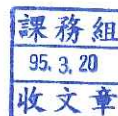 課務組
95.3.20
收文章